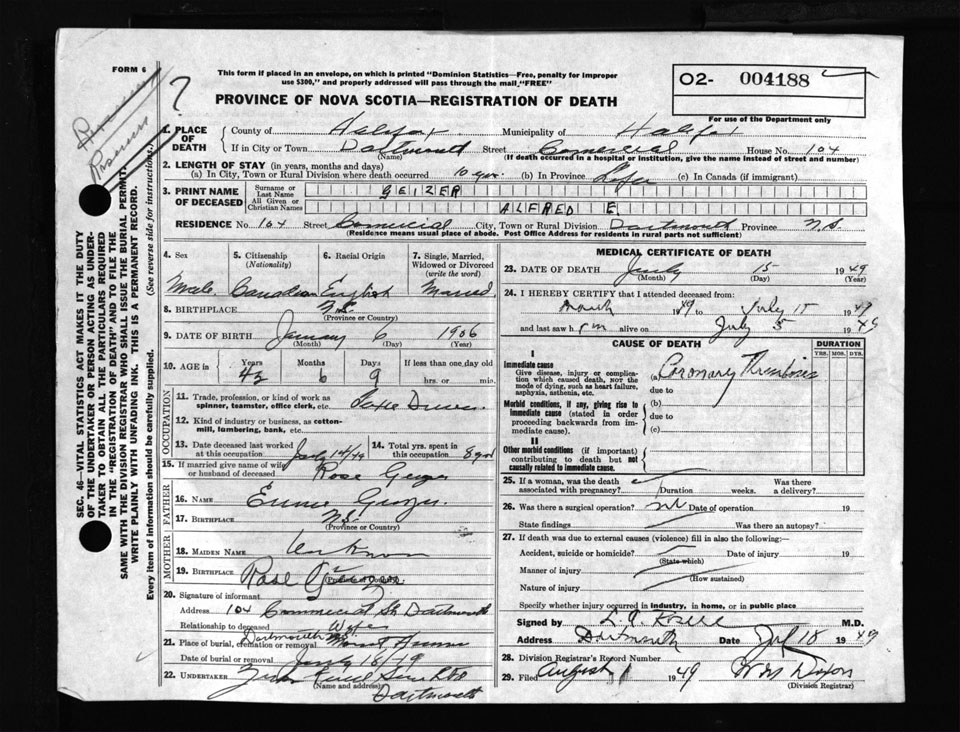 FORM 6
This form if placed in an envelope, on which is printed "Dominion Statistics—Free, penalty for improper
use $300," and properly addressed will pass through the mail, "FREE"
O2- 004188
PROVINCE OF NOVA SCOTIA—REGISTRATION OF DEATH
For use of the Department only
?
SEC. 46—VITAL STATISTICS ACT MAKES IT THE DUTY
OF THE UNDERTAKER OR PERSON ACTING AS UNDER-
TAKER TO OBTAIN ALL THE PARTICULARS REQUIRED
IN THE "REGISTRATION OF DEATH" AND TO FILE THE
SAME WITH THE DIVISION REGISTRAR WHO SHALL ISSUE THE BURIAL PERMIT.
WRITE PLAINLY WITH UNFADING INK. THIS IS A PERMANENT RECORD.
Every item of information should be carefully supplied. (See reverse side for instructions.)
1. PLACE OF DEATH
County of Halifax Municipality of Halifax
If in City or Town Dartmouth Street Comercial House No. 104
(Name) (If death occurred in a hospital or institution, give the name instead of street and number)
2. LENGTH OF STAY (in years, months and days)
(a) In City, Town or Rural Division where death occurred 10 yrs. (b) In Province Life (c) In Canada (if immigrant)
3. PRINT NAME OF DECEASED
Surname or Last Name GEIZER
All Given or Christian Names ALFRED E
RESIDENCE No. 104 Street Comercial City, Town or Rural Division Dartmouth Province N.S.
(Residence means usual place of abode. Post Office Address for residents in rural parts not sufficient)
4. Sex 5. Citizenship (Nationality) 6. Racial Origin 7. Single, Married, Widowed or Divorced (write the word)
Male Canadian English Married
8. BIRTHPLACE N.S.
(Province or Country)
9. DATE OF BIRTH January 6 1906
(Month) (Day) (Year)
10. AGE in Years Months Days If less than one day old
43 6 9 hrs. or min.
OCCUPATION
11. Trade, profession, or kind of work as
spinner, teamster, office clerk, etc. Taxie Driver.
12. Kind of industry or business, as cotton-
mill, lumbering, bank, etc.
13. Date deceased last worked
at this occupation July 14/49
14. Total yrs. spent in
this occupation 8 yrs
15. If married give name of wife
or husband of deceased Rose Geizer
FATHER
16. NAME
17. BIRTHPLACE N.S.
(Province or Country)
MOTHER
18. MAIDEN NAME Unknown
19. BIRTHPLACE
20. Signature of informant Rose Geizer
Address 104 Commercial St Dartmouth
Relationship to deceased Wife
21. Place of burial, cremation or removal Dartmouth N.S.
Date of burial or removal July 18/49
22. UNDERTAKER
(Name and address) Dartmouth
MEDICAL CERTIFICATE OF DEATH
23. DATE OF DEATH July 15 1949
(Month) (Day) (Year)
24. I HEREBY CERTIFY that I attended deceased from:
March 1949 to July 15 1949
and last saw him alive on July 5 1949
CAUSE OF DEATH DURATION
YRS. MOS. DYS.
I
Immediate cause
Give disease, injury or complica-
tion which caused death, NOT the
mode of dying, such as heart failure,
asphyxia, asthenia, etc.
(a) Coronary Thrombosis
due to
Morbid conditions, if any, giving rise to
immediate cause (stated in order
proceeding backwards from im-
mediate cause).
(b)
due to
(c)
II
Other morbid conditions (if important)
contributing to death but not
causally related to immediate cause.
25. If a woman, was the death
associated with pregnancy? Duration weeks. Was there
a delivery?
26. Was there a surgical operation? Date of operation 19
State findings Was there an autopsy?
27. If death was due to external causes (violence) fill in also the following:—
Accident, suicide or homicide? Date of injury 19
(State which)
Manner of injury
(How sustained)
Nature of injury
Specify whether injury occurred in industry, in home, or in public place
Signed by M.D.
Address Dartmouth Date July 18 1949
28. Division Registrar's Record Number
29. Filed August 1 1949
(Division Registrar)